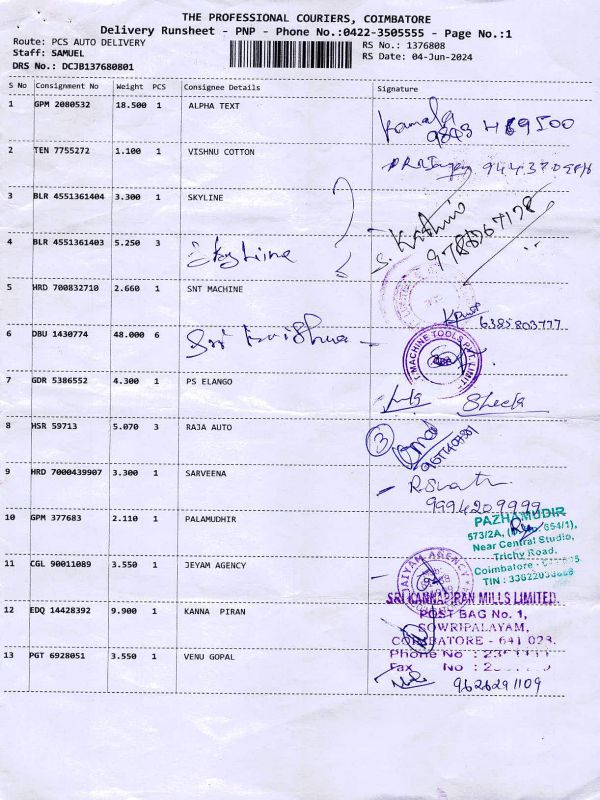 THE PROFESSIONAL COURIERS, COIMBATORE
Delivery Runsheet - PNP - Phone No.:0422-3505555 - Page No.:1
Route: PCS AUTO DELIVERY
RS No.: 1376808
Staff: SAMUEL
RS Date: 04-Jun-2024
DRS No.: DCJB137680801
S No Consignment No Weight PCS Consignee Details Signature
1 GPM 2080532 18.500 1 ALPHA TEXT
Kamala
9843 469500
2 TEN 7755272 1.100 1 VISHNU COTTON
3 BLR 4551361404 3.300 1 SKYLINE
S. Kathir
4 BLR 4551361403 5.250 3 Skyline
5 HRD 700832710 2.660 1 SNT MACHINE
6385803777
6 DBU 1430774 48.000 6 Sri krishna
MACHINE TOOLS PVT. LIMIT
7 GDR 5386552 4.300 1 PS ELANGO
8 HSR 59713 5.070 3 RAJA AUTO
3
9 HRD 7000439907 3.300 1 SARVEENA
9994209999
10 GPM 377683 2.110 1 PALAMUDHIR
PAZHAMUDIR
573/2A, 654/1),
Near Central Studio,
Trichy Road,
Coimbatore -
TIN :
11 CGL 90011089 3.550 1 JEYAM AGENCY
AGENCY
12 EDQ 14428392 9.900 1 KANNA PIRAN
SRI KANNAPIRAN MILLS LIMITED.
POST BAG No. 1,
SOWRIPALAYAM,
COIMBATORE - 641 028.
Phone No :
Fax No :
13 PGT 6928051 3.550 1 VENU GOPAL
9626291109